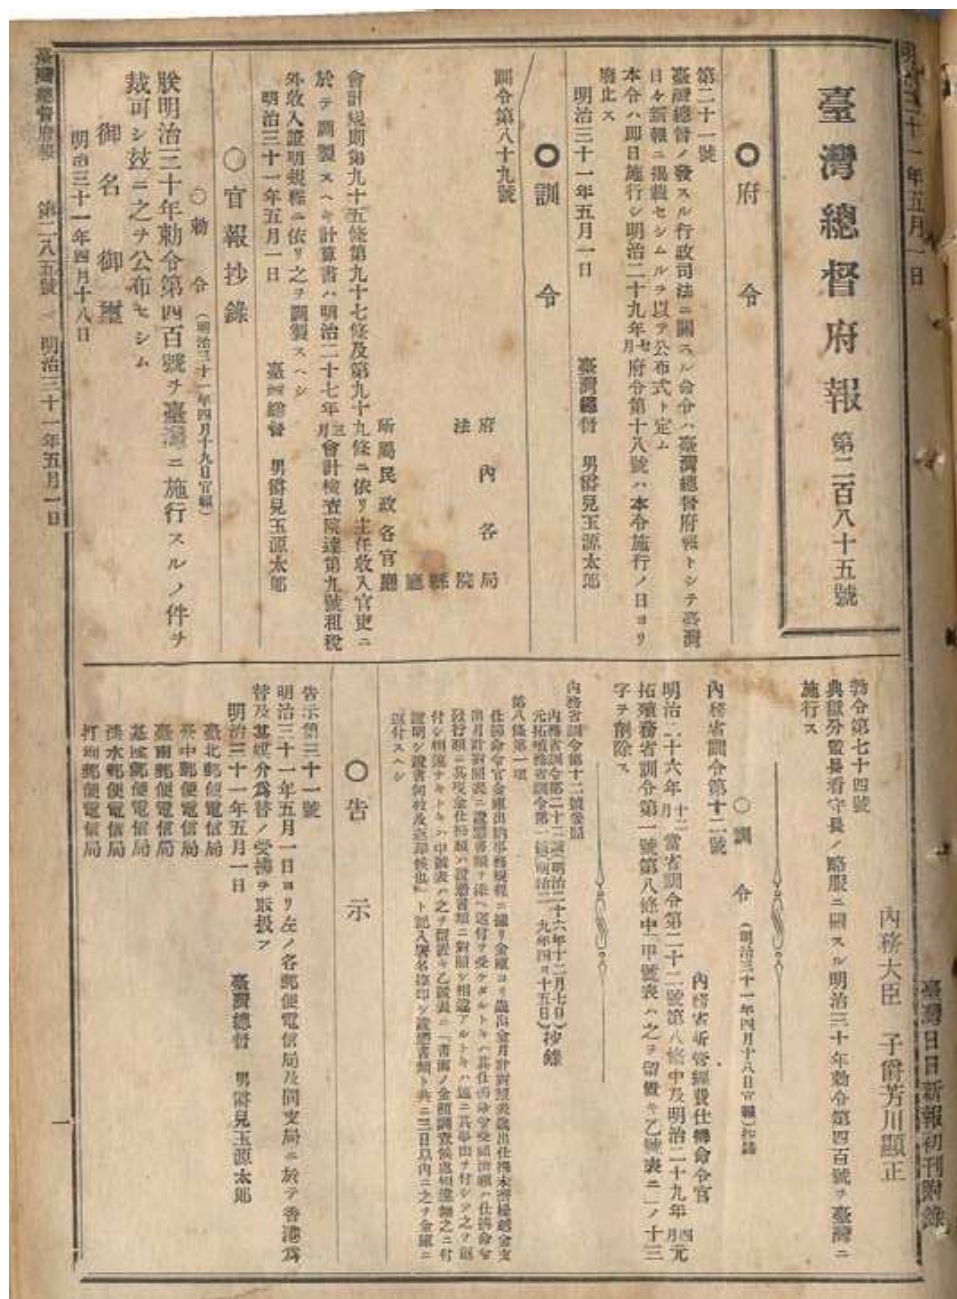 明治三十一年五月一日
臺灣總督府報 第二百八十五號
◯府令
第二十一號
臺灣總督ノ發スル行政司法ニ關スル命令ハ臺灣總督府報トシテ臺灣
日々新報ニ揭載セシムルヲ以テ公布式ト定ム
本令ハ卽日施行シ明治二十九年七月府令第十八號ハ本令施行ノ日ヨリ
廢止ス
明治三十一年五月一日
臺灣總督 男爵兒玉源太郎
◯訓令
訓令第八十九號
府內各局
法院
縣
廳
所屬民政各官廳
會計規則第九十五條第九十七條及第九十九條ニ依リ主任收入官吏ニ
於テ調製スヘキ計算書ハ明治二十七年三月會計檢査院達第九號租稅
外收入證明規程ニ依リ之ヲ調製スヘシ
明治三十一年五月一日
臺灣總督 男爵兒玉源太郎
◯官報抄錄
◯勅令 (明治三十一年四月十九日官報)
朕明治三十年勅令第四百號ヲ臺灣ニ施行スルノ件ヲ
裁可シ玆ニ之ヲ公布セシム
御名御璽
明治三十一年四月十八日
內務大臣 子爵芳川顯正
勅令第七十四號
典獄分監長看守長ノ略服ニ關スル明治三十年勅令第四百號ヲ臺灣ニ
施行ス
◯訓令 (明治三十一年四月十八日官報)抄錄
內務省訓令第十二號
內務省所管經費仕拂命令官
明治二十六年十二月當省訓令第二十二號第八條中及明治二十九年四月元
拓殖務省訓令第一號第八條中「甲號表ハ之ヲ留置キ乙號表ニ」ノ十三
字ヲ削除ス
內務省訓令第十二號參照
內務省訓令第二十二號(明治二十六年十二月七日)
元拓殖務省訓令第一號(明治二十九年四月十五日)抄錄
第八條第一項
仕拂命令官金庫出納事務規程ニ據リ金庫ヨリ歲出金月計對照表歲出仕拂未濟繰越金支
出月計對照表ニ證憑書類ヲ添ヘ送付ヲ受ケタルトキハ其仕拂命令受領濟額ハ仕拂命令
發行額ニ其現金仕拂額ハ證憑書類ニ對照シ相違アルトキハ
付シ相違ナキトキハ甲號表ハ之ヲ留置キ乙號表ニ「書面ノ金額調査候處相違無之ニ付
證明シ證書何枚及返却候也」ト記入署名捺印シ證憑書類ト共ニ三日以內ニ之ヲ金庫ニ
送付スヘシ
◯告示
告示第三十一號
明治三十一年五月一日ヨリ左ノ各郵便電信局及同支局ニ於テ香港爲
替及基隆分爲替ノ受拂ヲ取扱フ
明治三十一年五月一日
臺灣總督 男爵兒玉源太郎
臺北郵便電信局
臺中郵便電信局
臺南郵便電信局
基隆郵便電信局
淡水郵便電信局
打狗郵便電信局
臺灣日日新報初刊附錄
臺灣總督府報 第二八五號 明治三十一年五月一日
一